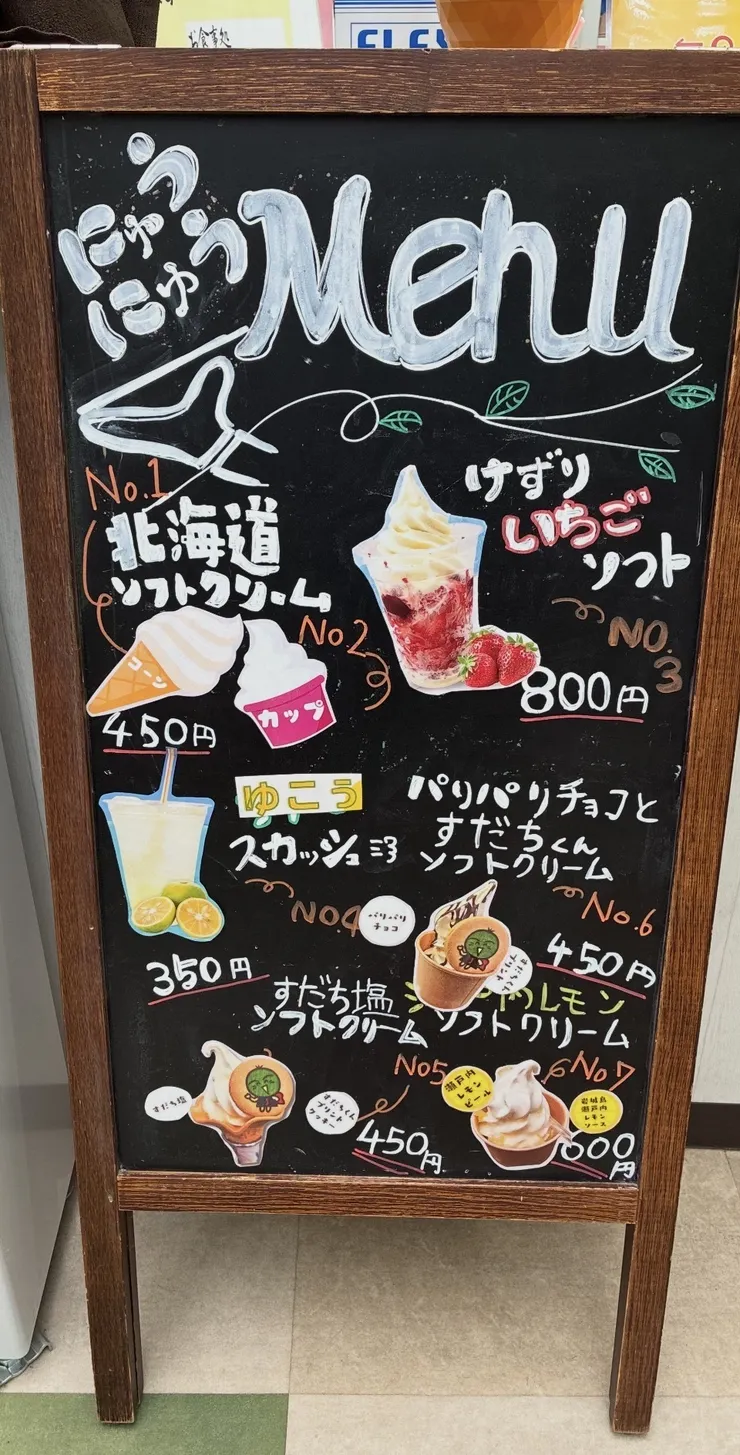 お食事処
にゅう
にゅう
Menu
No.1
北海道
ソフトクリーム
コーン
No2
カップ
450円
けずり
いちご
ソフト
NO.
3
800円
ゆこう
スカッシュ
NO4
350円
パリパリチョコと
すだちくん
ソフトクリーム
No.6
パリパリ
チョコ
すだちくん
プリント
450円
すだち塩
ソフトクリーム
No5
すだち塩
すだちくん
プリント
クッキー
450円
レモン
ソフトクリーム
No7
瀬戸内
レモン
ピール
岩城島
瀬戸内
レモン
ソース
600
円